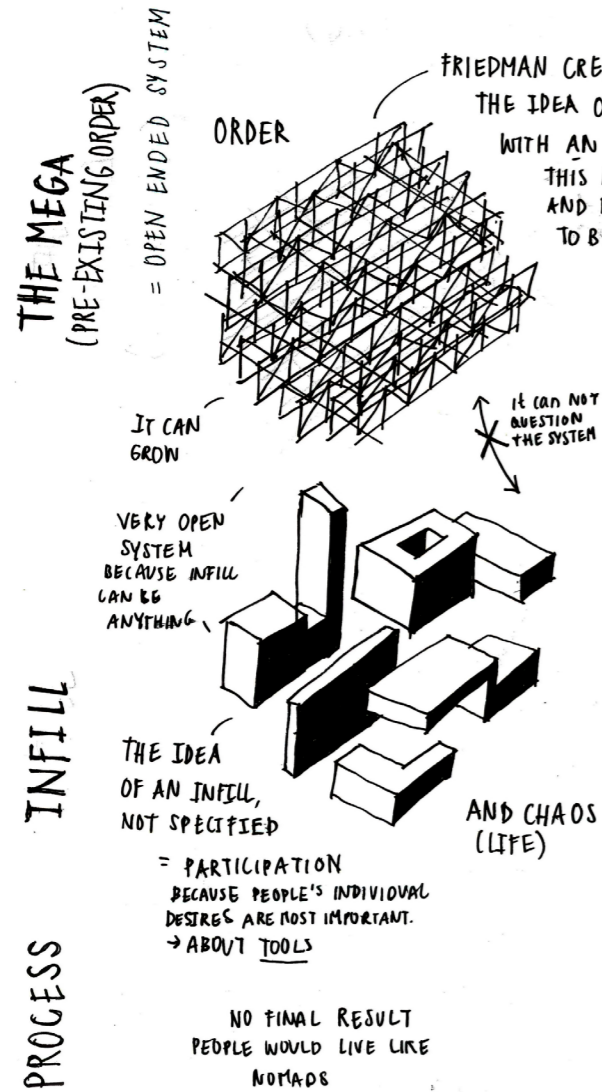 THE MEGA
(PRE-EXISTING ORDER)
= OPEN ENDED SYSTEM
ORDER
FRIEDMAN CRE
THE IDEA O
WITH AN
THIS
AND
TO B
IT CAN
GROW
it can not
question
the system
VERY OPEN
SYSTEM
BECAUSE INFILL
CAN BE
ANYTHING
INFILL
THE IDEA
OF AN INFILL,
NOT SPECIFIED
AND CHAOS
(LIFE)
= PARTICIPATION
BECAUSE PEOPLE'S INDIVIDUAL
DESIRES ARE MOST IMPORTANT.
→ ABOUT TOOLS
PROCESS
NO FINAL RESULT
PEOPLE WOULD LIVE LIKE
NOMADS